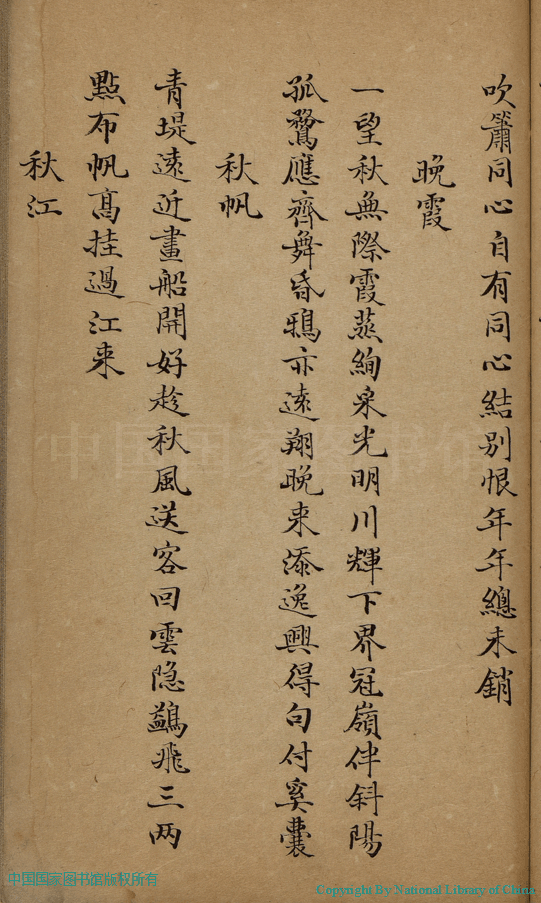 吹簫同心自有同心結別恨年年總未銷
晚霞
一望秋無際霞蒸絢彩光明川輝下界冠嶺伴斜陽
孤鶩應齊舞昏鴉亦遠翔晚来添逸興得句付奚囊
秋帆
青堤遠近畫船開好趁秋風送客回雲隐鷁飛三两
點布帆髙挂過江来
秋江
中国国家图书馆
中国国家图书馆版权所有
Copyright By National Library of China